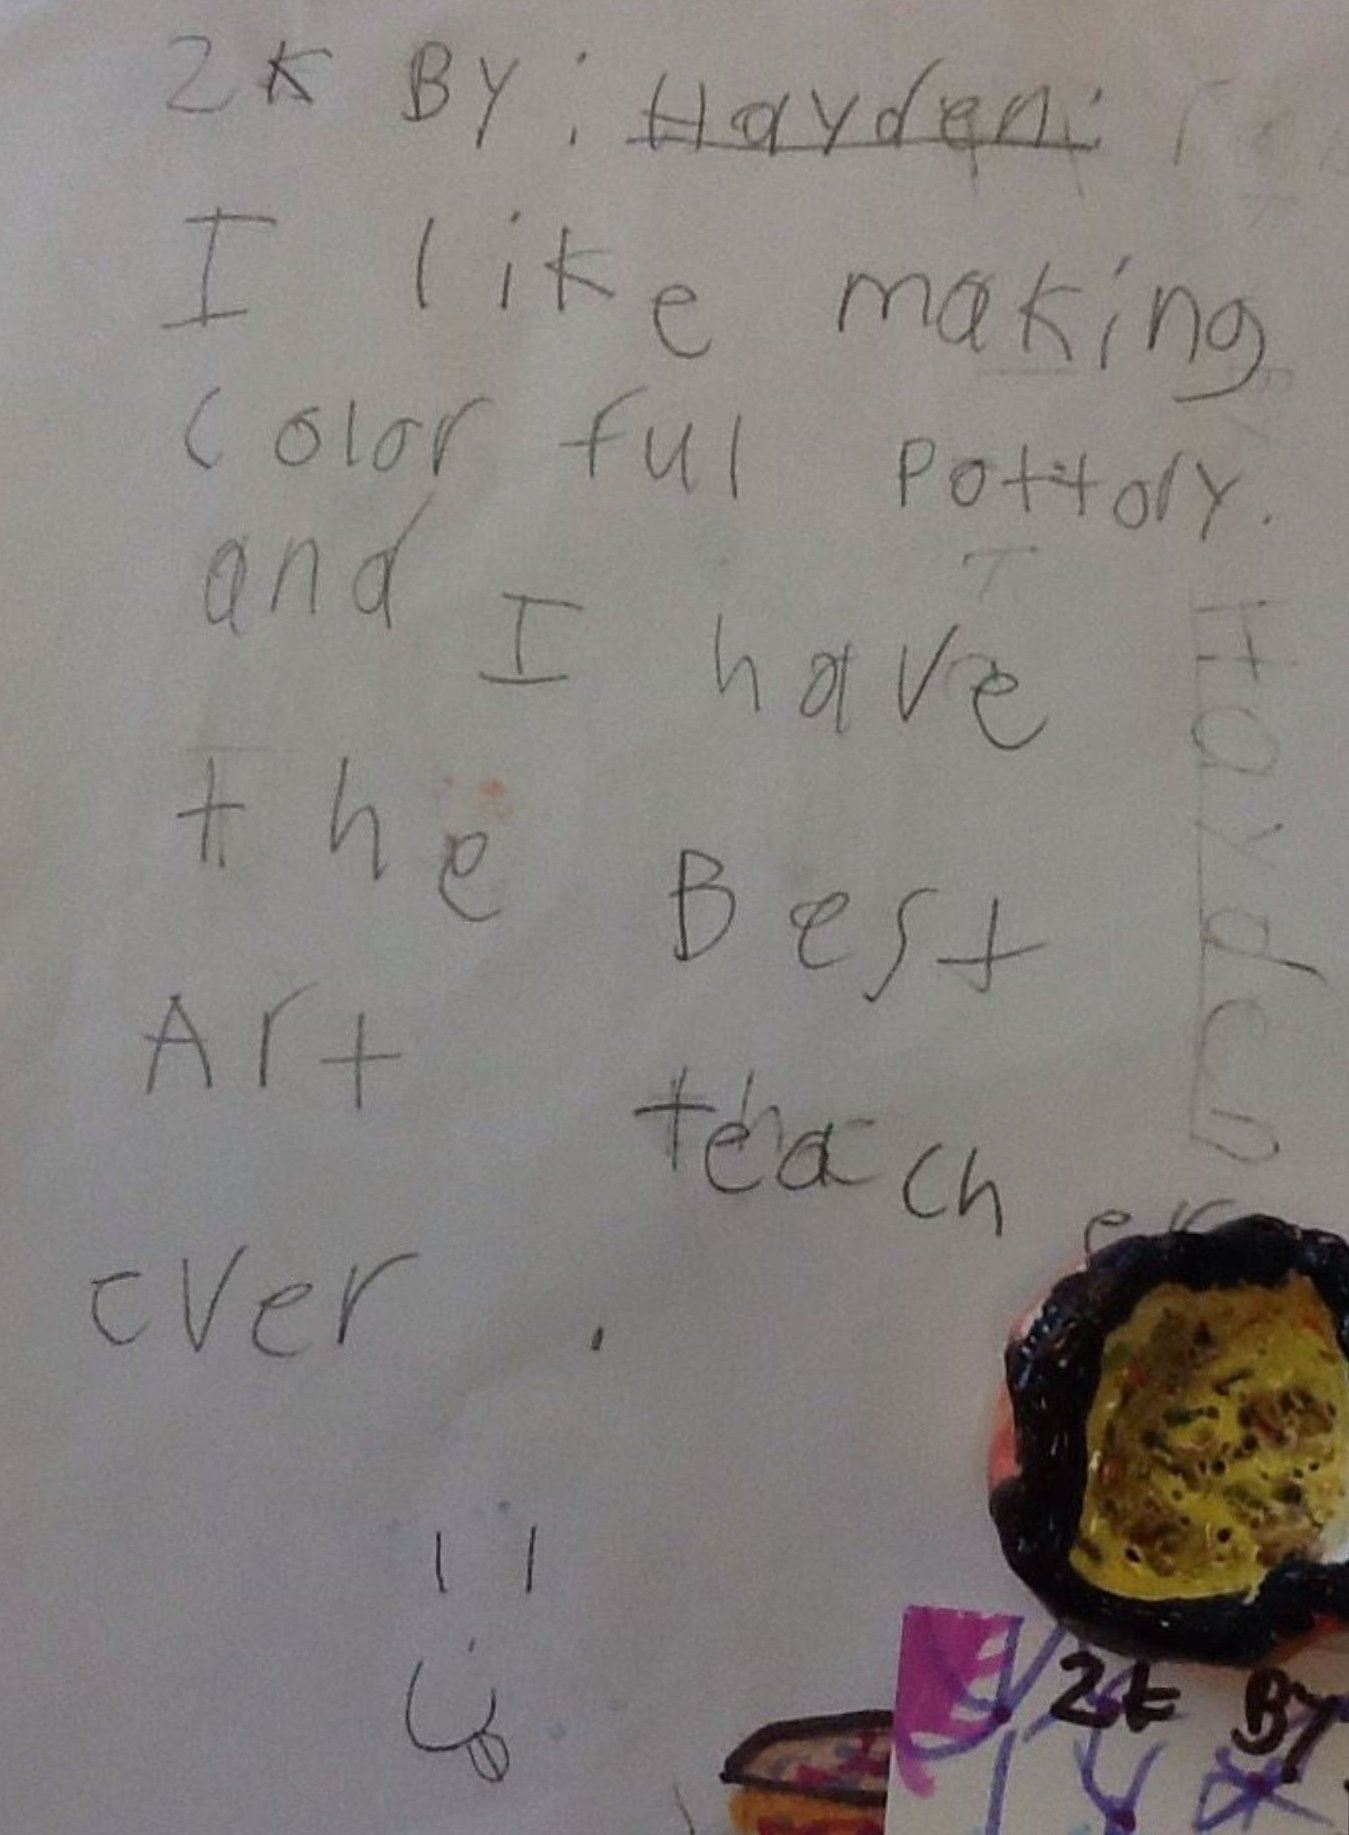 2K By: Hayden
I like making
Color ful Pottory.
and I have
the Best
Art teach er
ever .
Hayden
2K By